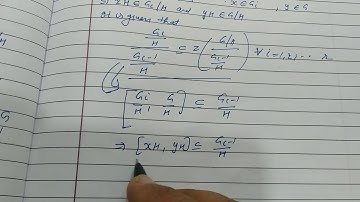 If xH ∈ Gi/H and yH ∈ G/H x ∈ Gi, y ∈ G
It is given that
(Gi/H)/(Gi-1/H) ⊆ Z((G/H)/(Gi-1/H)) ∀ i=1,2,... r
[Gi/H, G/H] ⊆ Gi-1/H
⇒ [xH, yH] ⊆ Gi-1/H